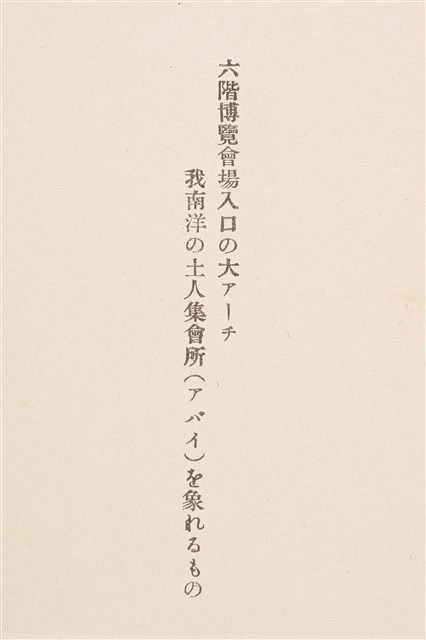 六階博覽會場入口の大アーチ
我南洋の土人集會所(アバイ)を象れるもの